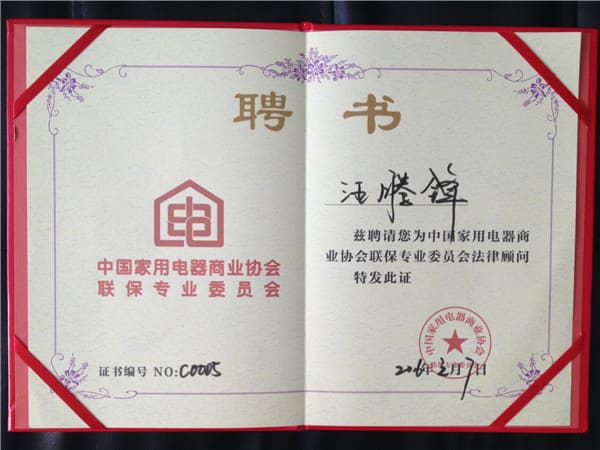 聘书
中国家用电器商业协会
联保专业委员会
证书编号 NO:C0005
汪腾锋
兹聘请您为中国家用电器商
业协会联保专业委员会法律顾问
特发此证
中国家用电器商业协会
2016年3月7日